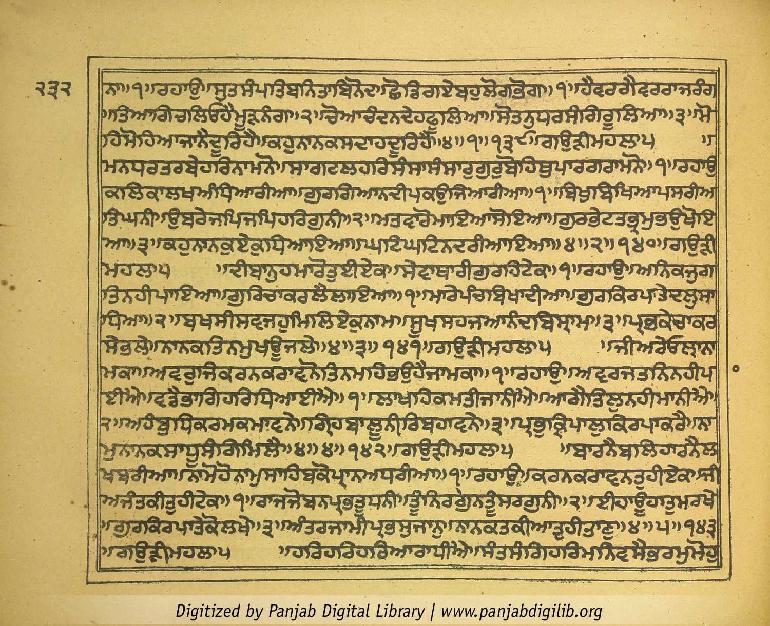 ੨੩੨
ਨਾ॥੧॥ਰਹਾਉ॥ਸੁਤਸੰਪਤਿਬਨਿਤਾਬਿਨੋਦ॥ਛੋਡਿਗਏਬਹੁਲੋਗਭੋਗ॥੧॥ਹੈਵਰਗੈਵਰਰਾਜਰੰਗ
॥ਤਿਆਗਿਚਲਿਓਹੈਮੂੜਨੰਗ॥੨॥ਚੋਆਚੰਦਨਦੇਹਫੂਲਿਆ॥ਸੋਤਨੁਧਰਸੰਗਿਰੂਲਿਆ॥੩॥ਮੋ
ਹਿਮੋਹਿਆਜਾਨੈਦੂਰਿਹੈ॥ਕਹੁਨਾਨਕਸਦਾਹਦੂਰਿਹੈ॥੪॥੧॥੧੩੯॥ਗਉੜੀਮਹਲਾ੫ ॥
ਮਨਧਰਤਰਬੇਹਰਿਨਾਮਨੋ॥ਸਾਗਰਲਹਰਿਸੰਸਾਸੰਸਾਰੁਗੁਰੁਬੋਹਿਥੁਪਾਰਗਰਾਮਨੋ॥੧॥ਰਹਾਉ
ਕਲਿਕਾਲਖਅੰਧਿਆਰੀਆ॥ਗੁਰਗਿਆਨਦੀਪਕਉਜਿਆਰੀਆ॥੧॥ਬਿਖੁਬਿਖਿਆਪਸਰੀਅ
ਤਿਘਨੀ॥ਉਬਰੇਜਪਿਜਪਿਹਰਿਗੁਨੀ॥੨॥ਮਤਵਾਰੋਮਾਇਆਸੋਇਆ॥ਗੁਰਭੇਟਤਭ੍ਰਮੁਭਉਖੋਇ
ਆ॥੩॥ਕਹੁਨਾਨਕਏਕੁਧਿਆਇਆ॥ਘਟਿਘਟਿਨਦਰੀਆਇਆ॥੪॥੨॥੧੪੦॥ਗਉੜੀ
ਮਹਲਾ੫ ॥ਦੀਬਾਨੁਹਮਾਰੋਤੁਹੀਏਕ॥ਸੇਵਾਥਾਰੀਗੁਰਹਿਟੇਕ॥੧॥ਰਹਾਉ॥ਅਨਿਕਜੁਗ
ਤਿਨਹੀਪਾਇਆ॥ਗੁਰਿਚਾਕਰਲੈਲਾਇਆ॥੧॥ਮਾਰੇਪੰਚਬਿਖਾਦੀਆ॥ਗੁਰਕਿਰਪਾਤੇਦਲੁਸਾ
ਧਿਆ॥੨॥ਬਖਸੀਸਵਜਹੁਮਿਲਿਏਕੁਨਾਮ॥ਸੂਖਸਹਜਆਨੰਦਬਿਸ੍ਰਾਮ॥੩॥ਪ੍ਰਭਕੇਚਾਕਰ
ਸੇਭਲੇ॥ਨਾਨਕਤਿਨਮੁਖਊਜਲੇ॥੪॥੩॥੧੪੧॥ਗਉੜੀਮਹਲਾ੫ ॥ਜੀਅਰੇਓਲ੍ਹਾਨਾ
ਮਕਾ॥ਅਵਰੁਜਿਕਰਨਕਰਾਵਨੋਤਿਨਮਹਿਭਉਹੈਜਾਮਕਾ॥੧॥ਰਹਾਉ॥ਅਵਰਜਤਨਿਨਹੀਪ
ਾਈਐ॥ਵਡੈਭਾਗਿਹਰਿਧਿਆਈਐ॥੧॥ਲਾਖਹਿਕਮਤੀਜਾਨੀਐ॥ਆਗੈਤਿਲੁਨਹੀਮਾਨੀਐ॥
੨॥ਅਹੰਬੁਧਿਕਰਮਕਮਾਵਨੇ॥ਗ੍ਰਿਹਬਾਲੂਨੀਰਿਬਹਾਵਨੇ॥੩॥ਪ੍ਰਭੁਕ੍ਰਿਪਾਲੁਕਿਰਪਾਕਰੈ॥ਨਾ
ਮੁਨਾਨਕਸਾਧੂਸੰਗਿਮਿਲੈ॥੪॥੪॥੧੪੨॥ਗਉੜੀਮਹਲਾ੫ ॥ਬਾਰਨੈਬਲਿਹਾਰਨੈਲ
ਖਬਰੀਆ॥ਨਾਮੋਹੋਨਾਮੁਸਾਹਿਬਕੋਪ੍ਰਾਨਅਧਰੀਆ॥੧॥ਰਹਾਉ॥ਕਰਨਕਰਾਵਨਤੁਹੀਏਕ॥ਜੀ
ਅਜੰਤਕੀਤੁਹੀਟੇਕ॥੧॥ਰਾਜਜੋਬਨਪ੍ਰਭਤੂੰਧਨੀ॥ਤੂੰਨਿਰਗੁਨਤੂੰਸਰਗੁਨੀ॥੨॥ਈਹਾਊਹਾਤੁਮਰਖੇ
॥ਗੁਰਕਿਰਪਾਤੇਕੋਲਖੇ॥੩॥ਅੰਤਰਜਾਮੀਪ੍ਰਭਸੁਜਾਨੁ॥ਨਾਨਕਤਕੀਆਤੁਹੀਤਾਣੁ॥੪॥੫॥੧੪੩
॥ਗਉੜੀਮਹਲਾ੫ ॥ਹਰਿਹਰਿਹਰਿਆਰਾਧੀਐ॥ਸੰਤਸੰਗਿਹਰਿਮਨਿਵਸੈਭਰਮੁਮੋਹੁ
Digitized by Panjab Digital Library | www.panjabdigilib.org